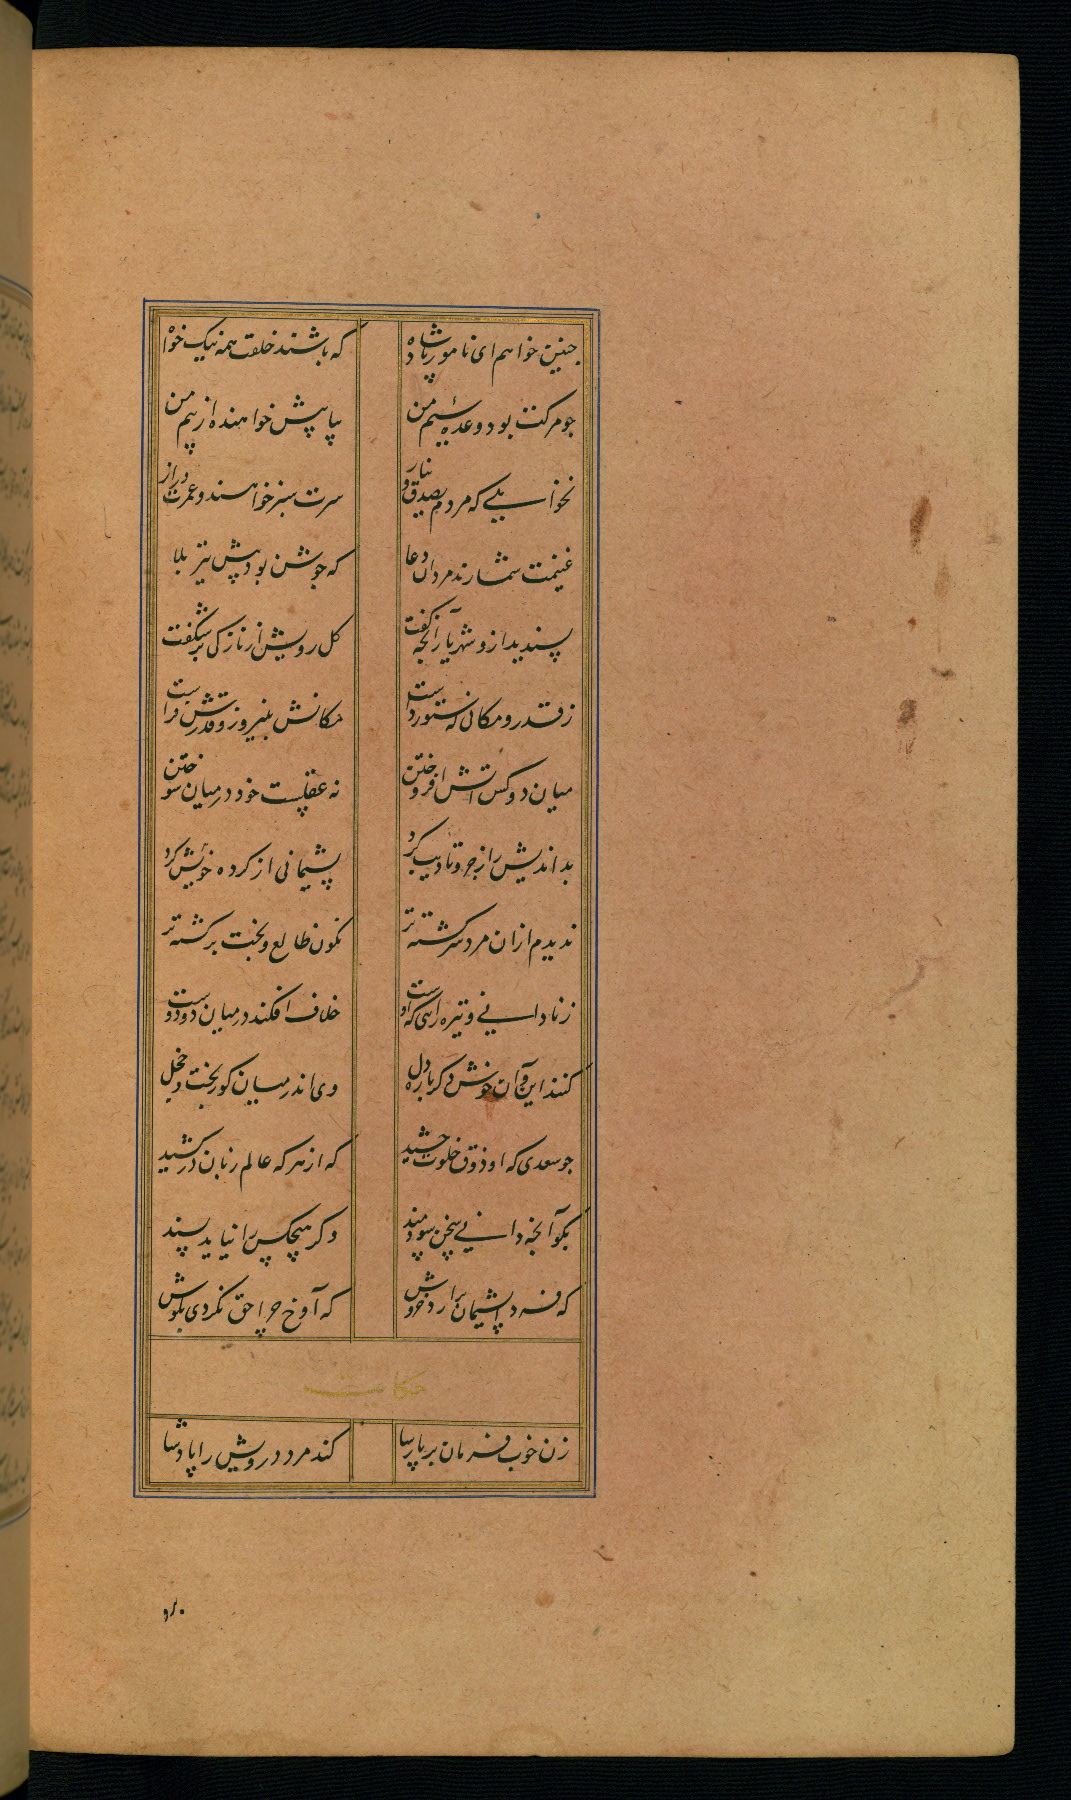 جنین خواهم ای نامور پادشاه که باشند خلقت همه نیک خواه
جو مرکت بود وعده سیم من بپا پیش خواهند از بیم من
نخواهی که مردم بصدق و نیاز سرت سبز خواهند و عمرت دراز
غنیمت شمارند مردان دعا که جوشن بود پیش تیر بلا
پسندید ازو شهریار آنجه کفت کل رویش از نازکی بر شکفت
ز قدر و مکانی که دستور داشت مکانش بیفزود و قدرش فراشت
میان دو کس آتش افروختن نه عقلست خود در میان سوختن
بد اندیش را زجر و تادیب کرد پشیمانی از کرده خویش کرد
ندیدم از ان مرد سرکشته تر نکون طالع و بخت برکشته تر
ز نادانی و تیره رایی که اوست خلاف افکند در میان دو دوست
کنند این و آن خوش دکر باره دل وی اندر میان کوربخت و خجل
جو سعدی که او ذوق خلوت جشید که از هر که عالم زبان درکشید
بکو آنجه دانی سخن سودمند وکر هیچکس را نیاید پسند
که فردا پشیمان برارد خروش که آوخ جرا حق نکردی بکوش
حکایت
زن خوب فرمان بر پارسا کند مرد درویش را پادشا